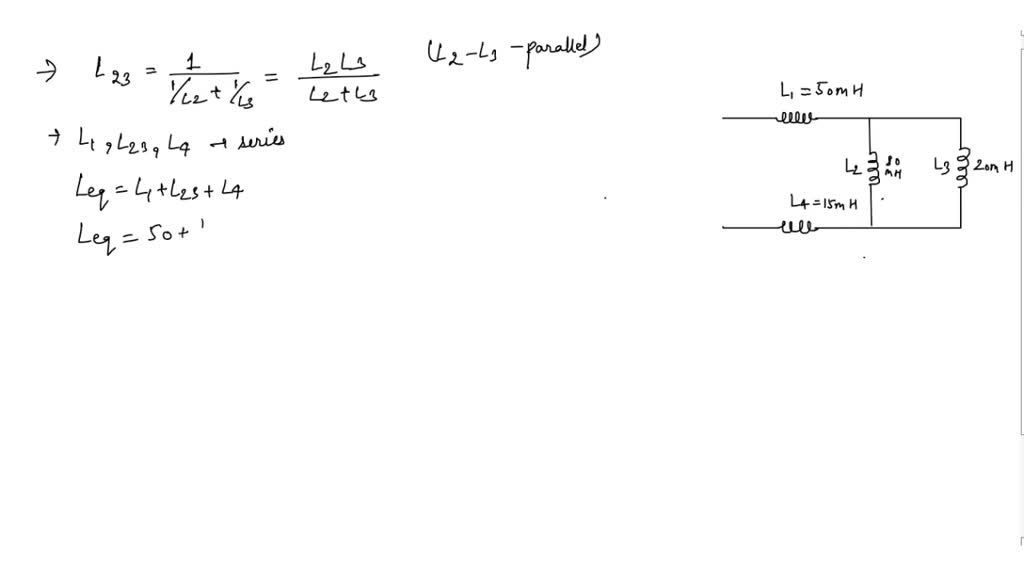 → L23 = 1 / (1/L2 + 1/L3) = L2 L3 / (L2 + L3) (L2 - L3 - parallel)
→ L1, L23, L4 → series
Leq = L1 + L23 + L4
Leq = 50 +
L1 = 50mH
L2
mH
L3
20mH
L4 = 15mH